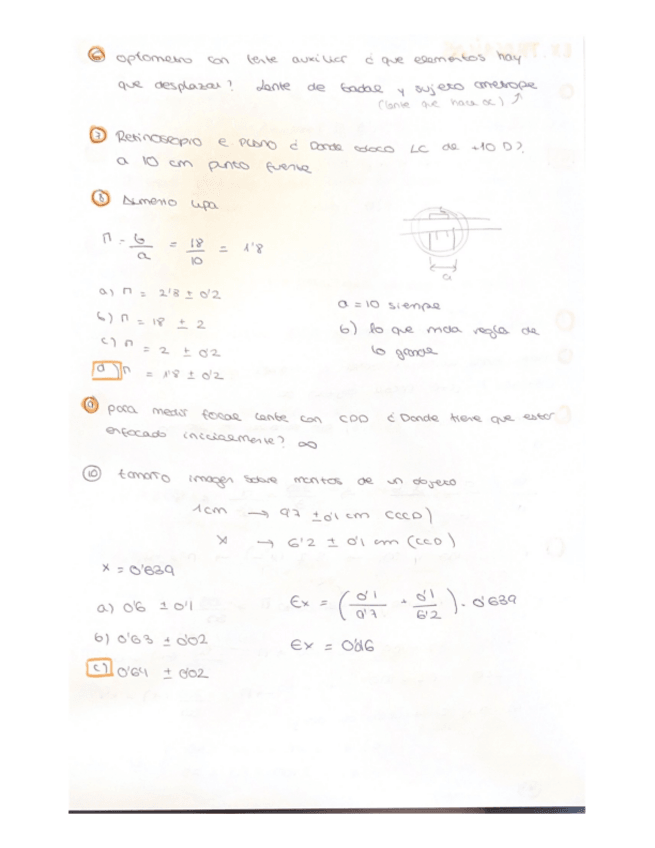 6 optometro con lente auxiliar ¿ que elementos hay
que desplazar? Lente de badal y sujeto ametrope
(lente que hace de) ↑
7 Retinoscopio E PLANO ¿ Donde coloco LC de +10 D?
a 10 cm punto fuente
8 Aumento lupa
Π = b/a = 18/10 = 1'8
a
a) Π = 2'8 ± 0'2
b) Π = 18 ± 2
c) Π = 2 ± 0'2
d) Π = 1'8 ± 0'2
a = 10 siempre
b) lo que mida regla de
lo grande
9 para medir focal lente con CDD ¿ Donde tiene que estar
enfocado inicialmente? ∞
10 tamaño imagen sobre monitor de un objeto
1cm → 9'7 ± 0'1 cm (CCD)
x → 6'2 ± 0'1 cm (CCD)
x = 0'639
a) 0'6 ± 0'1
b) 0'63 ± 0'02
c) 0'64 ± 0'02
Ex = (0'1/9'7 + 0'1/6'2) · 0'639
Ex = 0'016